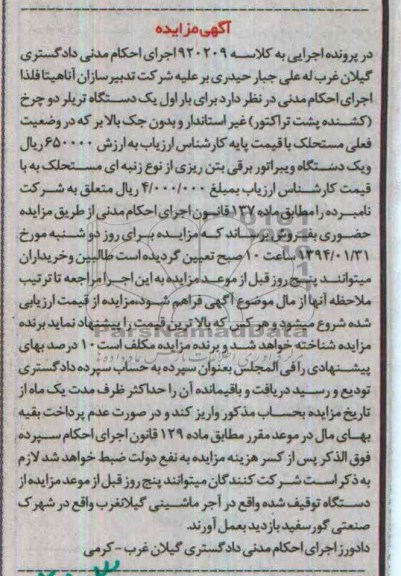 آگهی مزایده
در پرونده اجرایی به کلاسه ۹۲۰۲۰۹ اجرای احکام مدنی دادگستری
گیلان غرب له علی جبار حیدری بر علیه شرکت تدبیر سازان آناهیتا فلذا
اجرای احکام مدنی در نظر دارد برای بار اول یک دستگاه تریلر دو چرخ
(کشنده پشت تراکتور) غیر استاندارد و بدون جک بالا بر که در وضعیت
فعلی مستحلک با قیمت پایه کارشناس ارزیاب به ارزش ۶۵۰۰۰۰۰ ریال
ویک دستگاه ویبراتور برقی بتن ریزی از نوع زنبه ای مستحلک به با
قیمت کارشناس ارزیاب بمبلغ ۴/۰۰۰/۰۰۰ ریال متعلق به شرکت
نامبرده را مطابق ماده ۱۳۷ قانون اجرای احکام مدنی از طریق مزایده
حضوری بفروش برساند که مزایده برای روز دو شنبه مورخ
۱۳۹۴/۰۱/۳۱ ساعت ۱۰ صبح تعیین گردیده است طالبین وخریداران
میتوانند پنج روز قبل از موعد مزایده به این اجرا مراجعه تا ترتیب
ملاحظه آنها از مال موضوع آگهی فراهم شود،مزایده از قیمت ارزیابی
شده شروع میشود و هر کس که بالا ترین قیمت را پیشنهاد نماید برنده
مزایده شناخته خواهد شد و برنده مزایده مکلف است ۱۰ درصد بهای
پیشنهادی را فی المجلس بعنوان سپرده به حساب سپرده دادگستری
تودیع و رسید دریافت و باقیمانده آن را حداکثر ظرف مدت یک ماه از
تاریخ مزایده بحساب مذکور واریز کند و در صورت عدم پرداخت بقیه
بهای مال در موعد مقرر مطابق ماده ۱۲۹ قانون اجرای احکام سپرده
فوق الذکر پس از کسر هزینه مزایده به نفع دولت ضبط خواهد شد لازم
به ذکر است شرکت کنندگان میتوانند پنج روز قبل از موعد مزایده از
دستگاه توقیف شده واقع در آجر ماشینی گیلانغرب واقع در شهرک
صنعتی گور سفید بازدید بعمل آورند.
دادورز اجرای احکام مدنی دادگستری گیلان غرب - کرمی
ParsNamadData